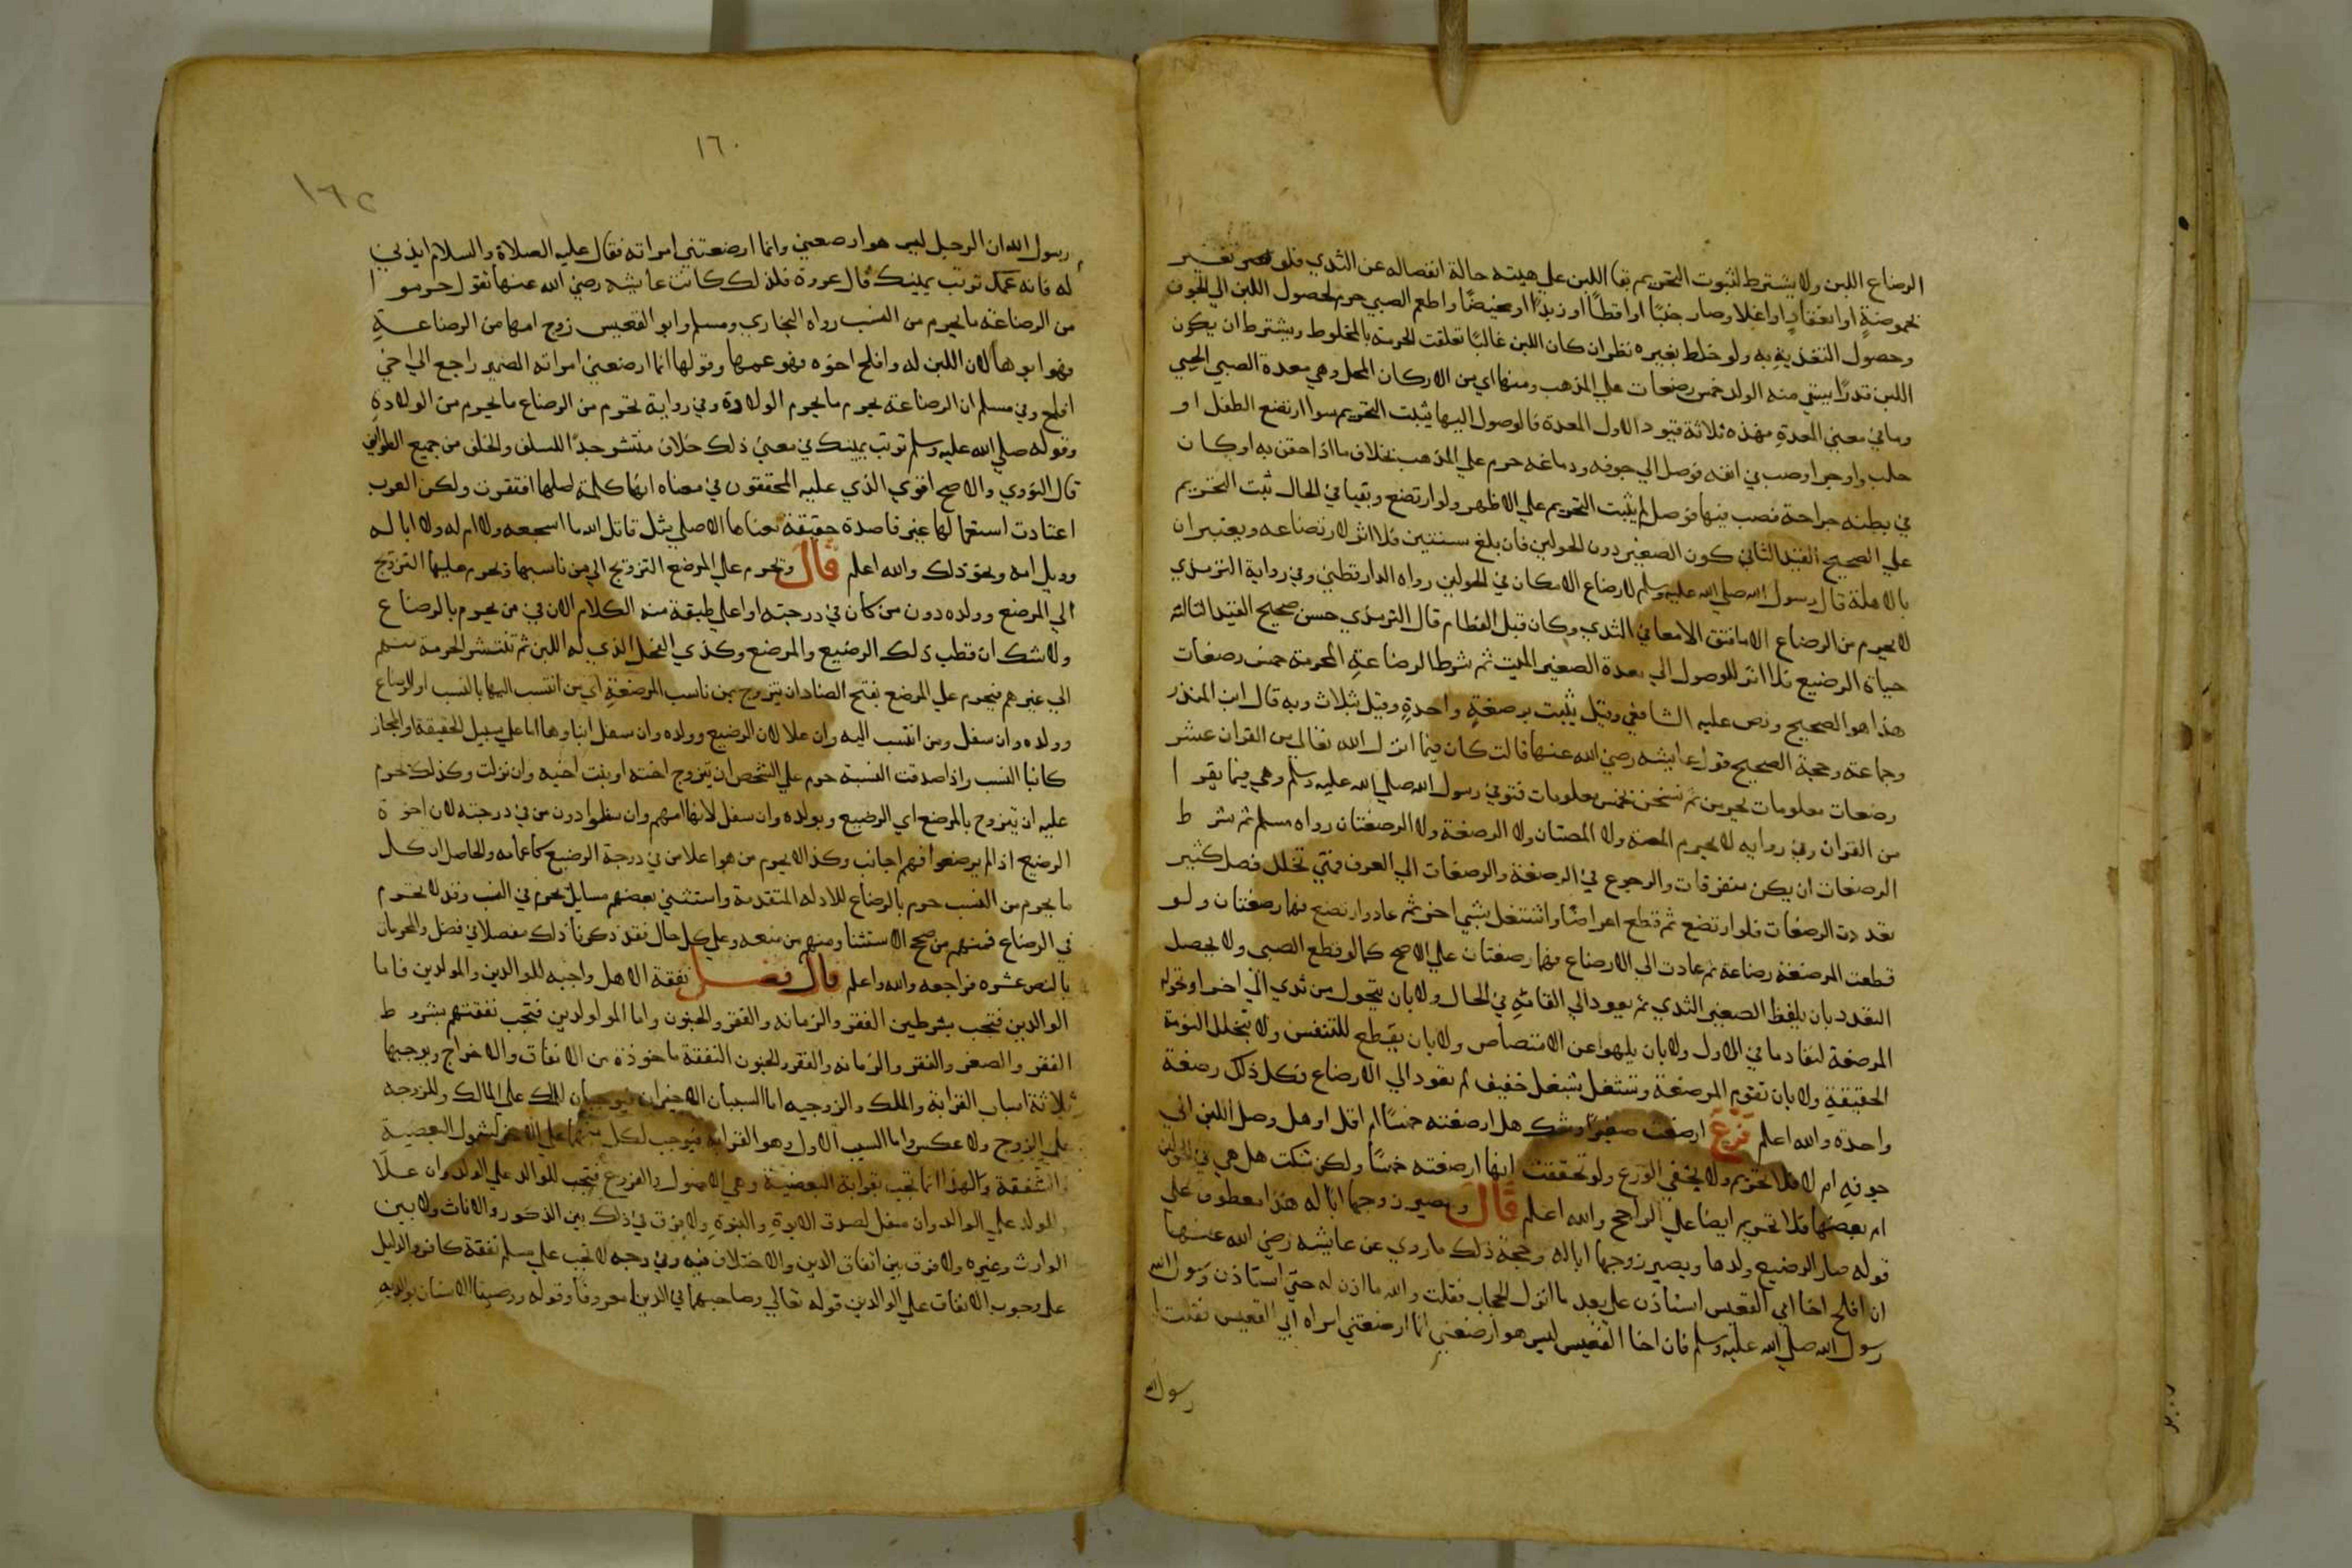 الرضاع اللبن ولا يشترط لثبوت التحريم بقا اللبن علي هيئته حالة انفصاله عن الثدي فلو تغير
بحموضة او انعقاد او اغلا وصار جبنًا او اقطًا او زبدًا او مخيضًا واطعم الصبي حرم لحصول اللبن الي الجوف
وحصول التغذية به ولو خلط بغيره نظر ان كان اللبن غالبًا تعلقت الحرمة بالمخلوط ويشترط ان يكون
اللبن قدرًا يسقي منه الولد خمس رضعات علي المذهب ومنها اي من الاركان المحل وهي معدة الصبي الحي
وما في معني المعدة فهذه ثلاثة قيود الاول المعدة فالوصول اليها يثبت التحريم سوا ارتضع الطفل او
حلب واوجر او صب في انفه فوصل الي جوفه ودماغه حرم علي المذهب بخلاف ما اذا حقن به او كان
في بطنه جراحة فصب فيها فوصل لم يثبت التحريم علي الاظهر ولو ارتضع وتقيا في الحال ثبت التحريم
علي الصحيح القيد الثاني كون الصغير دون الحولين فان بلغ سنتين فلا اثر لارتضاعه ويعتبران
بالاهلة قال رسول الله صلي الله عليه وسلم لا رضاع الا ما كان في الحولين رواه الدارقطني وفي رواية الترمذي
لا يحرم من الرضاع الا ما فتق الامعا في الثدي وكان قبل الفطام قال الترمذي حسن صحيح القيد الثالث
حياة الرضيع فلا اثر للوصول الي معدة الصغير الميت ثم شرط الرضاعة المحرمة خمس رضعات
هذا هو الصحيح ونص عليه الشافعي وقيل يثبت برضعة واحدة وقيل بثلاث وبه قال ابن المنذر
وجماعة وحجة الصحيح قول عايشه رضي الله عنها قالت كان فيما انزل الله تعالي من القران عشر
رضعات معلومات يحرمن ثم نسخن بخمس معلومات فتوفي رسول الله صلي الله عليه وسلم وهي فيما يقرا
من القران وفي روايه لا يحرم المصة ولا المصتان ولا الرضعة ولا الرضعتان رواه مسلم ثم شرط
الرضعات ان يكن متفرقات والرجوع في الرضعة والرضعات الي العرف فمتي تخلل فصل كثير
تعددت الرضعات فلو ارتضع ثم قطع اعراضًا واشتغل بشي اخر ثم عاد وارتضع فهما رضعتان ولو
قطعت المرضعة رضاعة ثم عادت الي الارضاع فهما رضعتان علي الاصح كما لو قطع الصبي ولا يحصل
التعدد بان يلفظ الصغير الثدي ثم يعود الي القامه في الحال ولا بان يتحول من ثدي الي اخر او تحوله
المرضعة لنفاد ما في الاول ولا بان يلهوا عن الامتصاص ولا بان يقطع للتنفس ولا بتخلل النومة
الحقيقية ولا بان تقوم المرضعة وتشتغل بشغل خفيف ثم تعود الي الارضاع فكل ذلك رضعة
واحدة والله اعلم فرع ارضعت صغيرا وشك هل ارضعته خمسًا ام اقل او هل وصل اللبن الي
جوفه ام لا فلا تحريم ولا يخفي الورع ولو تحققت انها ارضعته خمسًا ولكن شكت هل هي في الحولين
ام بعضها فلا تحريم ايضا علي الراجح والله اعلم قال ويصير زوجها ابا له هذا معطوف علي
قوله صار الرضيع ولدها ويصير زوجها ابا له وحجة ذلك ما روي عن عايشه رضي الله عنها
ان افلح اخا ابي القعيس استاذن علي بعد ما انزل الحجاب فقلت والله ما اذن له حتي استاذن رسول الله
رسول الله صلي الله عليه وسلم فان اخا القعيس ليس هو ارضعني انما ارضعتني امراه ابي القعيس فقلت
رسول الله
١٦٠
١٦٢
رسول الله ان الرجل ليس هو ارضعني وانما ارضعتني امراته فقال عليه الصلاة والسلام ايذني
له فانه عمك تربت يمينك قال عروة فلذلك كانت عايشه رضي الله عنها تقول حرموا
من الرضاعة ما يحرم من النسب رواه البخاري ومسلم وابو القعيس زوج امها من الرضاعة
فهو ابوها لان اللبن له وافلح اخوه فهو عمها وقولها انما ارضعني امراته الضمير راجع الي اخي
افلح وفي مسلم ان الرضاعة يحرم ما يحرم الولادة وفي رواية تحرم من الرضاع ما يحرم من الولادة
وقوله صلي الله عليه وسلم تربت يمينك في معني ذلك خلاف منتشر جدًا للسلف والخلف من جميع الطوايف
قال النووي والاصح اقوي الذي عليه المحققون في معناه انها كلمة اصلها افتقرت ولكن العرب
اعتادت استعمالها غير قاصدة حقيقة معناها الاصلي مثل قاتل الله ما اسجعه ولا ام له ولا ابا له
وويل امه ونحو ذلك والله اعلم قال ويحرم علي المرضع التزويج الي من ناسبها ويحرم عليها التزويج
الي المرضع وولده دون من كان في درجته او اعلي طبقة منه الكلام الان في من يحرم بالرضاع
ولا شك ان قطب ذلك الرضيع والمرضع وكذي الفحل الذي له اللبن ثم تنتشر الحرمة منهم
الي غيرهم فيحرم علي المرضع بفتح الضاد ان يتزوج بمن ناسب المرضعة اي من انتسب اليها بالنسب او الرضاع
وولده وان سفل ومن انتسب اليه وان علا لان الرضيع وولده وان سفل ابناوها اما علي سبيل الحقيقة او المجاز
كابنا النسب واذا صدقت النسبة حرم علي الشخص ان يتزوج اخته او بنت اخيه وان نزلت وكذلك يحرم
عليه ان يتزوج بالمرضع اي الرضيع وبولده وان سفل لانها امهم وان سفلوا دون من في درجته لان اخوة
الرضيع اذا لم يرضعوا فهم اجانب وكذا لا يحرم من هو اعلا من في درجة الرضيع كاعمامه والحاصل ان كل
ما يحرم من النسب حرم بالرضاع للادله المتقدمة واستثني بعضهم مسايل تحرم في النسب وقد لا تحرم
في الرضاع فمنهم من صحح الاستثنا ومنهم من منعه وعلي كل حال فقد ذكرنا ذلك مفصلا في فصل والمحرمات
بالنص عشره فراجعه والله اعلم قال فصل نفقة الاهل واجبه للوالدين والمولدين فاما
الوالدين فتجب بشرطين الفقر والزمانه والفقر والجنون واما المولودين فتجب نفقتهم بشرط
الفقر والصغر والفقر والزمانه والفقر والجنون النفقة ماخوذة من الانفاق والاخراج ويوجبها
ثلاثة اسباب القرابة والملك والزوجيه اما السببان الاخيران فيوجبان للملك علي المالك وللزوجه
علي الزوج ولا عكس واما السبب الاول وهو القرابة فيوجب لكل منهما علي الاخر لشمول البعضية
والشفقة ولهذا انما تجب بقرابة البعضية وهي الاصول والفروع فتجب للوالد علي الولد وان علا
وللولد علي الوالد وان سفل لصدق الابوة والبنوة ولا فرق في ذلك بين الذكور والاناث ولا بين
الوارث وغيره ولا فرق بين اتفاق الدين والاختلاف فيه وفي وجه لا تجب علي مسلم نفقة كافر والدليل
علي وجوب الانفاق علي الوالدين قوله تعالي وصاحبهما في الدنيا معروفًا وقوله ووصينا الانسان بوالديه